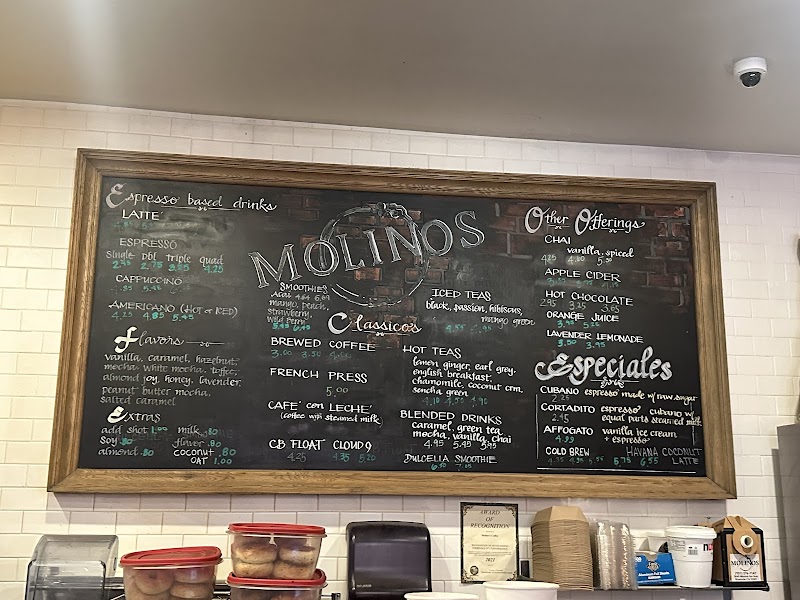 Espresso based drinks
LATTE
ESPRESSO
single dbl triple quad
2.45 2.75 3.25 4.25
CAPPUCCINO
AMERICANO (HOT or ICED)
4.25 4.85 5.45
Flavors
vanilla, caramel, hazelnut,
mocha, white mocha, toffee,
almond joy, honey, lavender,
peanut butter mocha,
salted caramel
Extras
add shot 1.00 milk .80
soy .80 flavor .80
almond .80 coconut .80
OAT 1.00
MOLINOS
SMOOTHIES
Acai 4.64 6.09
mango, peach,
strawberry,
wild berry
5.45 6.45
ICED TEAS
black, passion, hibiscus,
mango green
4.55 5.95
Classicos
BREWED COFFEE
3.00 3.50 4.00
FRENCH PRESS
5.00
CAFE' con LECHE'
(coffee with steamed milk)
CB FLOAT CLOUD 9
4.25 4.35 5.20
HOT TEAS
lemon ginger, earl grey,
english breakfast,
chamomile, coconut crm,
sencha green
BLENDED DRINKS
caramel, green tea,
mocha, vanilla, chai
4.95 5.45 5.95
DULCELIA SMOOTHIE
Other Offerings
CHAI
vanilla, spiced
4.25 4.80 5.50
APPLE CIDER
HOT CHOCOLATE
2.95 3.25 3.65
ORANGE JUICE
3.95 5.25
LAVENDER LEMONADE
3.50 3.95
Especiales
CUBANO espresso made w/ raw sugar
2.25
CORTADITO espresso cubano w/
2.45 equal parts steamed milk
AFFOGATO vanilla ice cream
4.99 + espresso
COLD BREW HAVANA COCONUT
4.35 4.95 5.55 5.75 6.55 LATTE
AWARD
OF
RECOGNITION
2021
MOLINOS